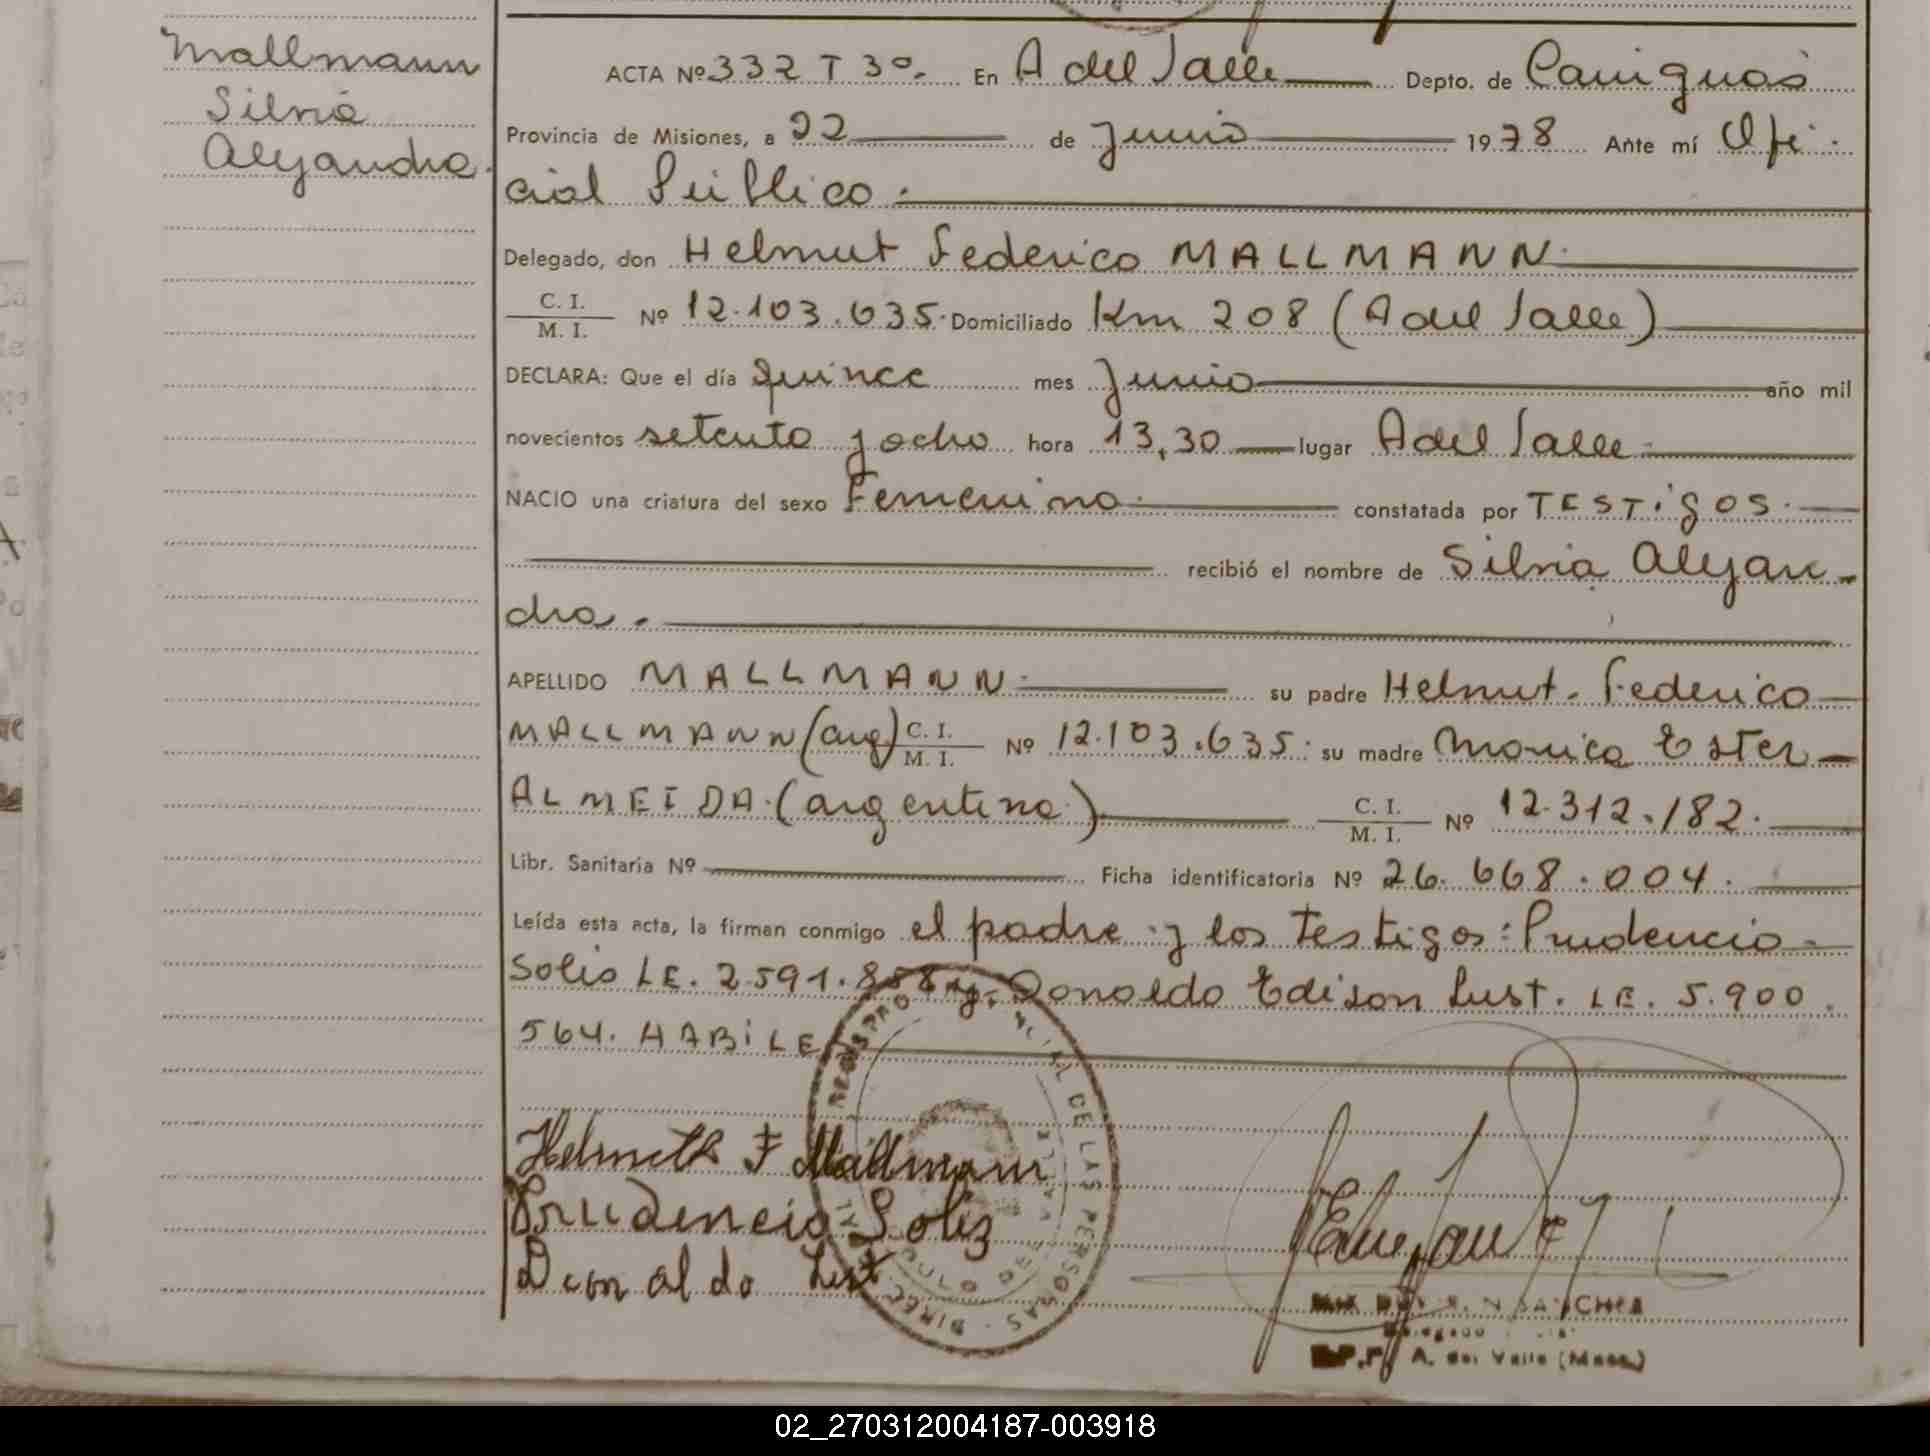 Mallmann
Silvia
Alejandra.
ACTA Nº 332 T 3º. En A del Valle Depto. de Cainguas
Provincia de Misiones, a 22 de Junio 1978 Ante mí Ofi-
cial Público.
Delegado, don Helmut Federico MALLMANN.
C. I. / M. I. Nº 12.103.635. Domiciliado Km 208 (A del Valle)
DECLARA: Que el día quince mes Junio año mil
novecientos setenta y ocho hora 13,30 lugar A del Valle.
NACIO una criatura del sexo Femenino. constatada por TESTigOS.
recibió el nombre de Silvia Alejan-
dra.
APELLIDO MALLMANN. su padre Helmut Federico
MALLMANN (arg) C. I. / M. I. Nº 12.103.635. su madre Monica Ester
ALMEIDA. (argentina) C. I. / M. I. Nº 12.312.182.
Libr. Sanitaria Nº Ficha identificatoria Nº 26.668.004.
Leída esta acta, la firman conmigo el padre y los testigos: Prudencio
Solis LE. 2.591.858 y Donaldo Edison Lust. LE. 5.900.
564. HABiLE
Helmuth F Mallmann
Prudencio Soliz
Donaldo Lust
DE LAS PERSONAS
SANCHEZ
Delegado
A. del Valle (Mnes)
02_270312004187-003918